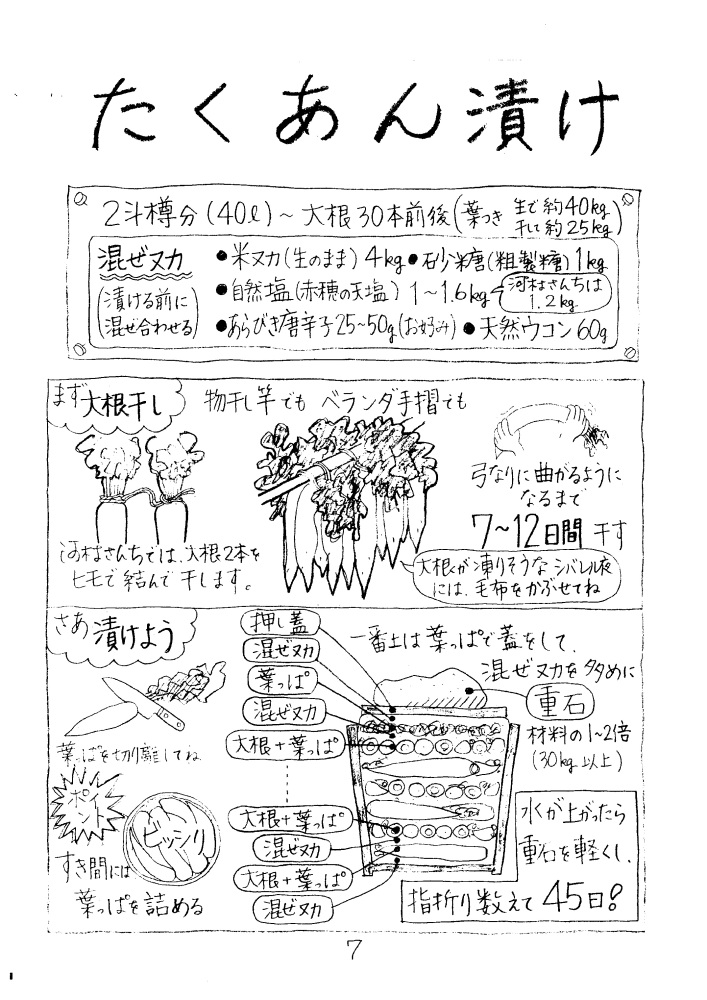 たくあん漬け
2斗樽分(40ℓ)～大根30本前後(葉つき 生で約40kg 干して約25kg)
混ぜヌカ
(漬ける前に混ぜ合わせる)
●米ヌカ(生のまま)4kg●砂糖(粗製糖)1kg
●自然塩(赤穂の天塩)1～1.6kg
河村さんちは1.2kg
●あらびき唐辛子25～50g(お好み)●天然ウコン60g
まず大根干し
物干し竿でも ベランダ手摺でも
弓なりに曲がるように
なるまで
7～12日間干す
河村さんちでは、大根2本を
ヒモで結んで干します。
大根が凍りそうなシバレル夜
には、毛布をかぶせてね
さあ漬けよう
葉っぱを切り離してね
ポイント
ビッシリ
すき間には
葉っぱを詰める
押し蓋
混ぜヌカ
葉っぱ
混ぜヌカ
大根+葉っぱ
大根+葉っぱ
混ぜヌカ
大根+葉っぱ
混ぜヌカ
一番上は葉っぱで蓋をして、
混ぜヌカを多めに
重石
材料の1～2倍
(30kg以上)
水が上がったら
重石を軽くし、
指折り数えて45日!
7